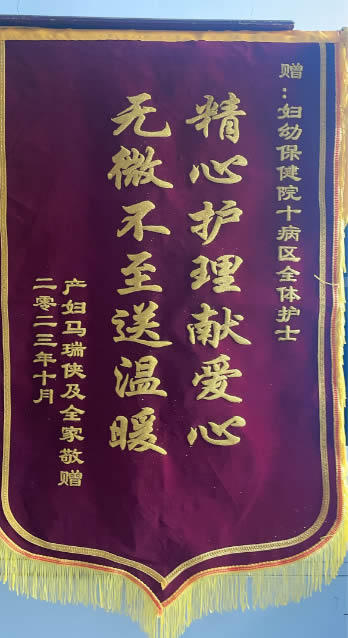 赠：妇幼保健院十病区全体护士
精心护理献爱心
无微不至送温暖
产妇马瑞侠及全家敬赠
二零二三年十月